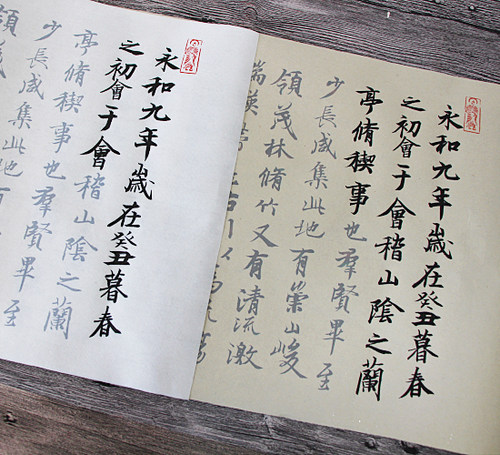 永和九年歲在癸丑暮春
之初會于會稽山陰之蘭
亭脩稧事也羣賢畢至
少長咸集此地有崇山峻
領茂林脩竹又有清流激
湍暎帶左右引以
永和九年歲在癸丑暮春
之初會于會稽山陰之蘭
亭脩稧事也羣賢畢至
少長咸集此地有
領茂